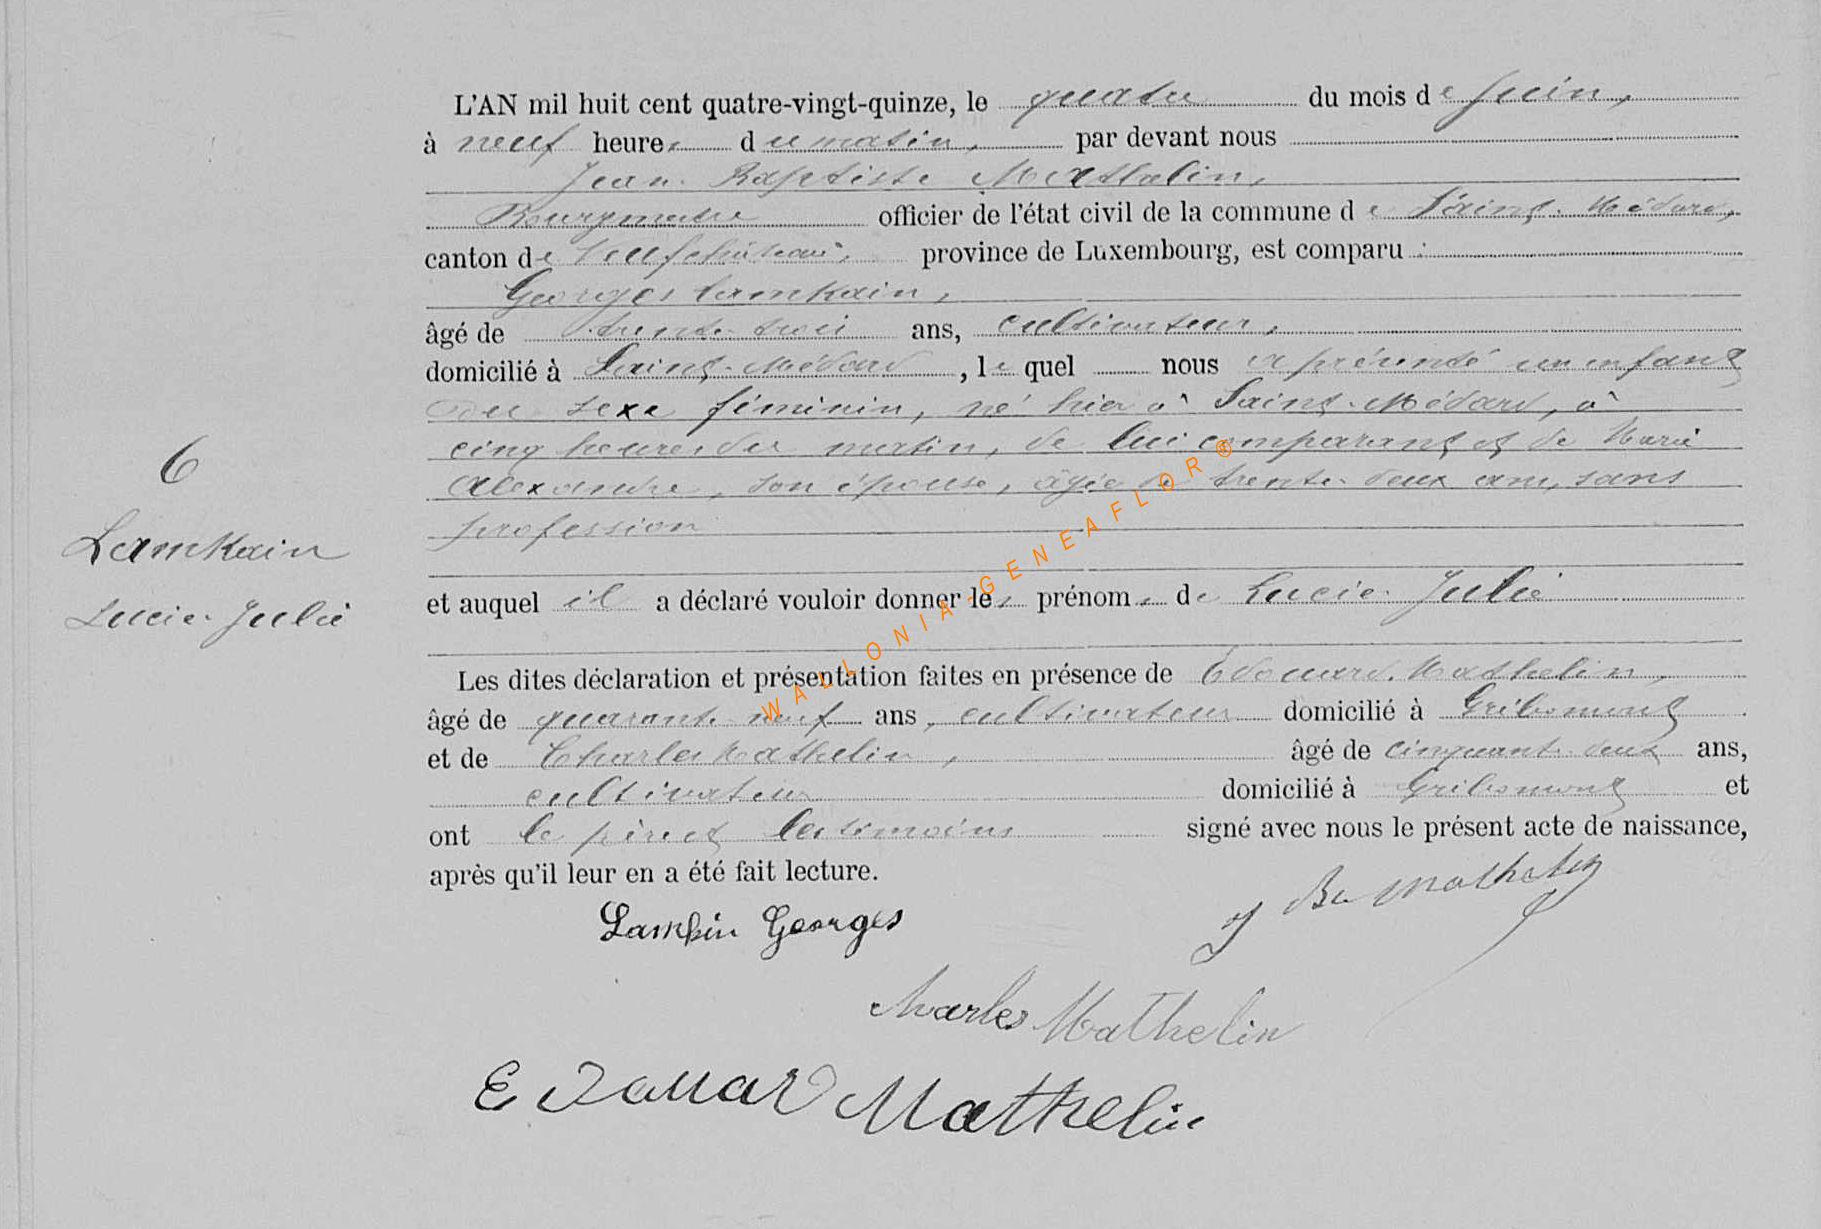 L'AN mil huit cent quatre-vingt-quinze, le quatre du mois de Juin,
à neuf heures du matin, par devant nous
Jean-Baptiste Mathelin,
Bourgmestre officier de l'état civil de la commune de Saint-Médard,
canton de Neufchâteau, province de Luxembourg, est comparu :
Georges Lamkain,
âgé de trente-trois ans, cultivateur,
domicilié à Saint-Médard, lequel nous a présenté un enfant
du sexe féminin, né hier à Saint-Médard, à
cinq heures du matin, de lui comparant et de Marie
Alexandre, son épouse, âgée de trente-deux ans, sans
profession
6
Lamkain
Lucie-Julie
et auquel il a déclaré vouloir donner les prénoms de Lucie-Julie
Les dites déclaration et présentation faites en présence de Edouard Mathelin,
âgé de quarante-neuf ans, cultivateur domicilié à Gribomont
et de Charles Mathelin, âgé de cinquante-deux ans,
cultivateur domicilié à Gribomont et
ont le père et les témoins signé avec nous le présent acte de naissance,
après qu'il leur en a été fait lecture.
J Bte Mathelin
Lamkin Georges
Charles Mathelin
Edouard Mathelin
WALLONIA-GENEAFLOR®